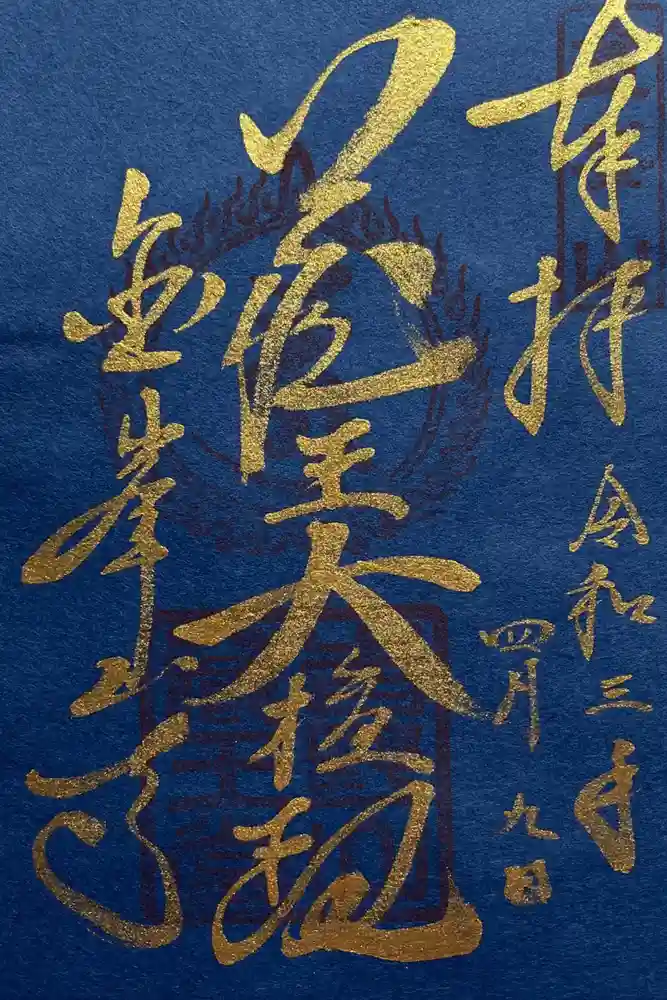 奉拝
令和三年
四月九日
蔵王大権現
金峯山寺